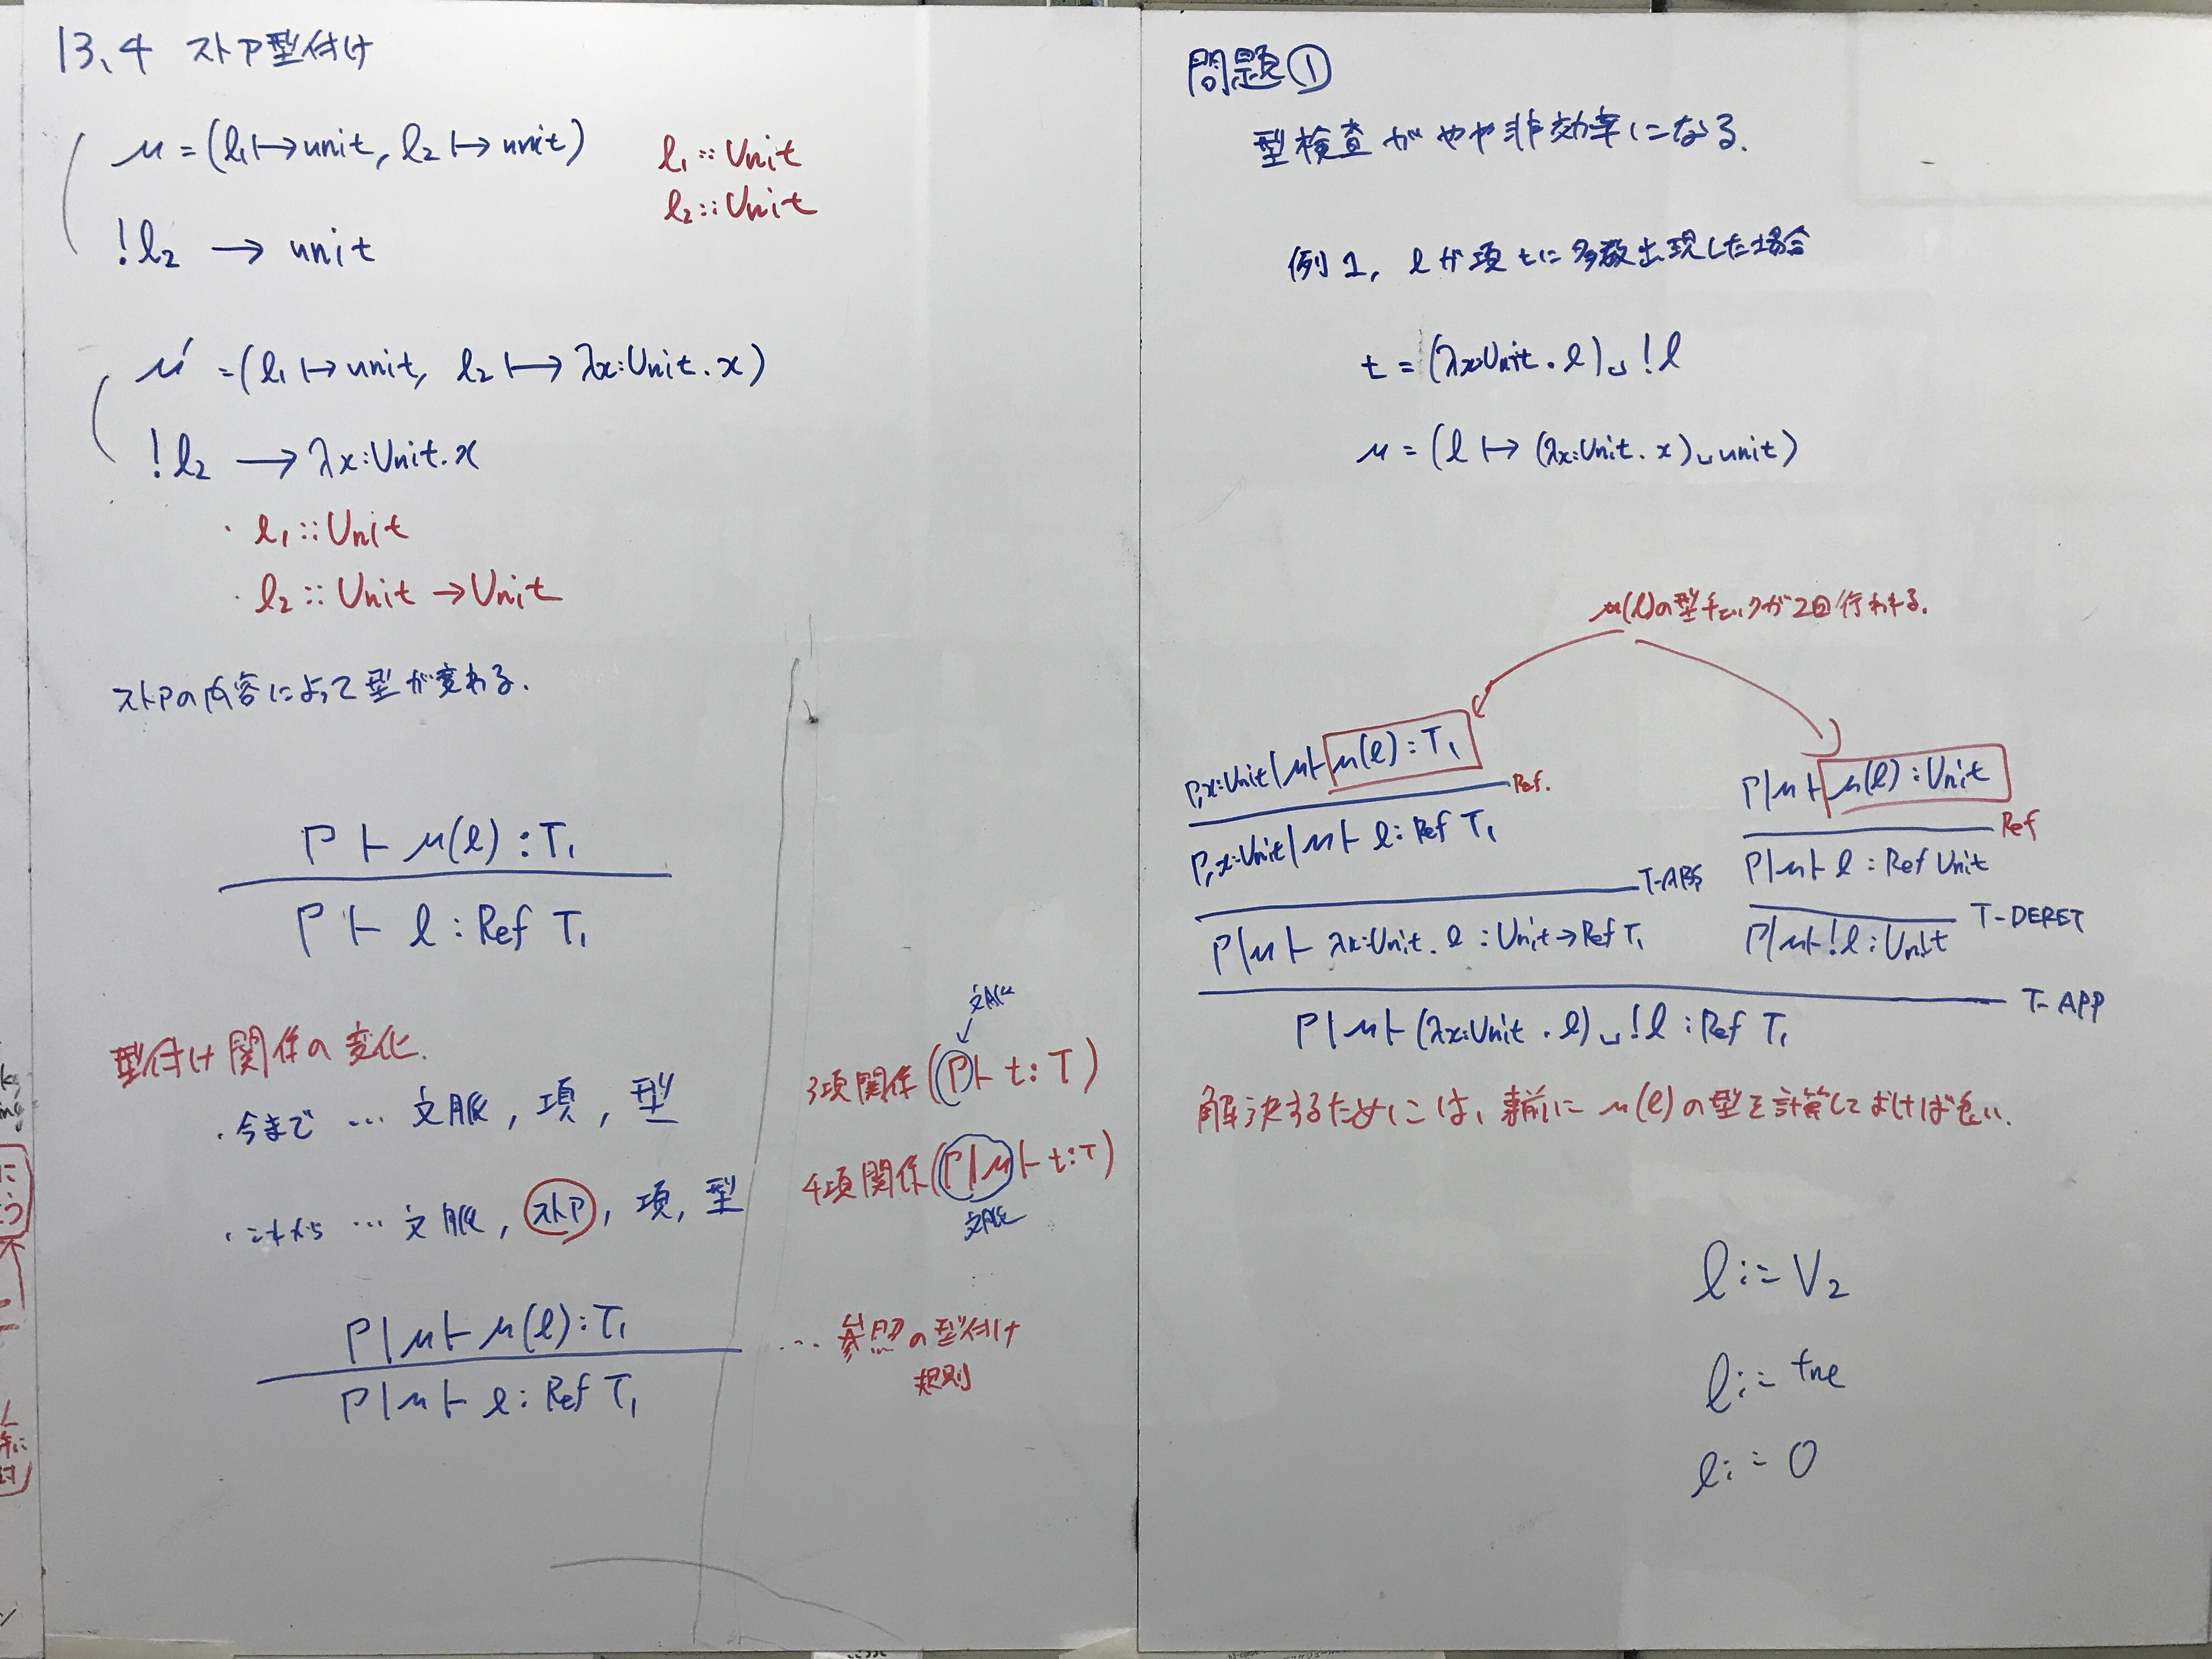 13.4 ストア型付け
μ = (l₁ ↦ unit, l₂ ↦ unit)
l₁ :: Unit
l₂ :: Unit
!l₂ → unit
μ' = (l₁ ↦ unit, l₂ ↦ λx:Unit.x)
!l₂ → λx:Unit.x
・l₁ :: Unit
・l₂ :: Unit → Unit
ストアの内容によって型が変わる.
Γ ⊢ μ(l) : T₁
Γ ⊢ l : Ref T₁
型付け関係の変化.
・今まで … 文脈, 項, 型
・これから … 文脈, ストア, 項, 型
文脈
3項関係(Γ ⊢ t : T)
4項関係(Γ|μ ⊢ t : T)
文脈
Γ|μ ⊢ μ(l) : T₁
Γ|μ ⊢ l : Ref T₁
… 参照の型付け
規則
問題①
型検査がやや非効率になる.
例1, lが項tに多数出現した場合
t = (λx:Unit.l)␣!l
μ = (l ↦ (λx:Unit.x)␣unit)
μ(l)の型チェックが2回行われる.
Γ,x:Unit|μ ⊢ μ(l) : T₁
Ref.
Γ,x:Unit|μ ⊢ l : Ref T₁
T-ABS
Γ|μ ⊢ λx:Unit.l : Unit → Ref T₁
Γ|μ ⊢ μ(l) : Unit
Ref
Γ|μ ⊢ l : Ref Unit
T-DEREF
Γ|μ ⊢ !l : Unit
T-APP
Γ|μ ⊢ (λx:Unit.l)␣!l : Ref T₁
解決するためには, 事前に μ(l) の型を計算しておけば良い.
l := V₂
l := true
l := 0